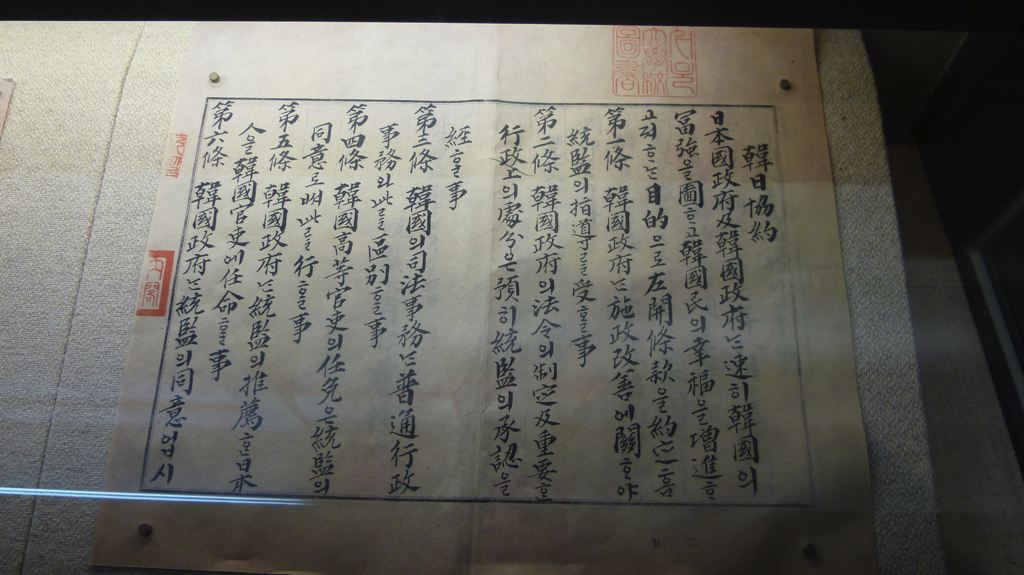 韓日協約
日本國政府及韓國政府는速히韓國의
富強을圖하고韓國民의幸福을增進하
고져하는目的으로左開條款을約定홈
第一條 韓國政府는施政改善에關하야
統監의指導를受할事
第二條 韓國政府의法令의制定及重要한
行政上의處分은預히統監의承認을
經할事
第三條 韓國의司法事務는普通行政
事務와此를區別할事
第四條 韓國高等官吏의任免은統監의
同意로써此를行할事
第五條 韓國政府는統監의推薦한日本
人을韓國官吏에任命할事
第六條 韓國政府는統監의同意업시
內閣